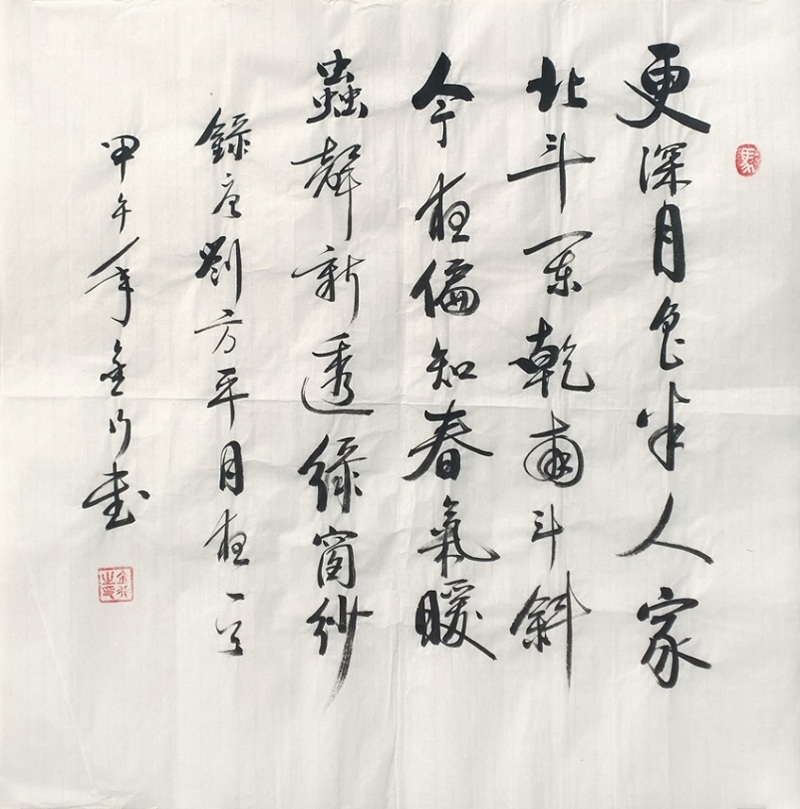 更深月色半人家
北斗闌乾南斗斜
今夜偏知春氣暖
蟲聲新透綠窗紗
錄唐劉方平月夜一首
甲午年金行書
金行之印